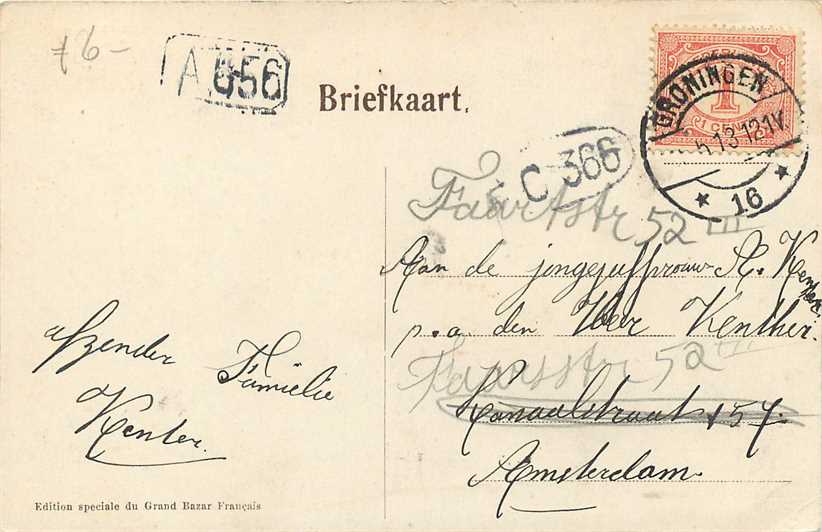 f 6-
A 656
Briefkaart.
GRONINGEN
13.12-1V
16
1 CENT
C 366
52 III
Aan de jongejuffrouw A. Kenther
p.a. den Heer Kenther.
52 III
Kanaalstraat 157.
Amsterdam
afzender Familie
Kenter.
Edition speciale du Grand Bazar Français